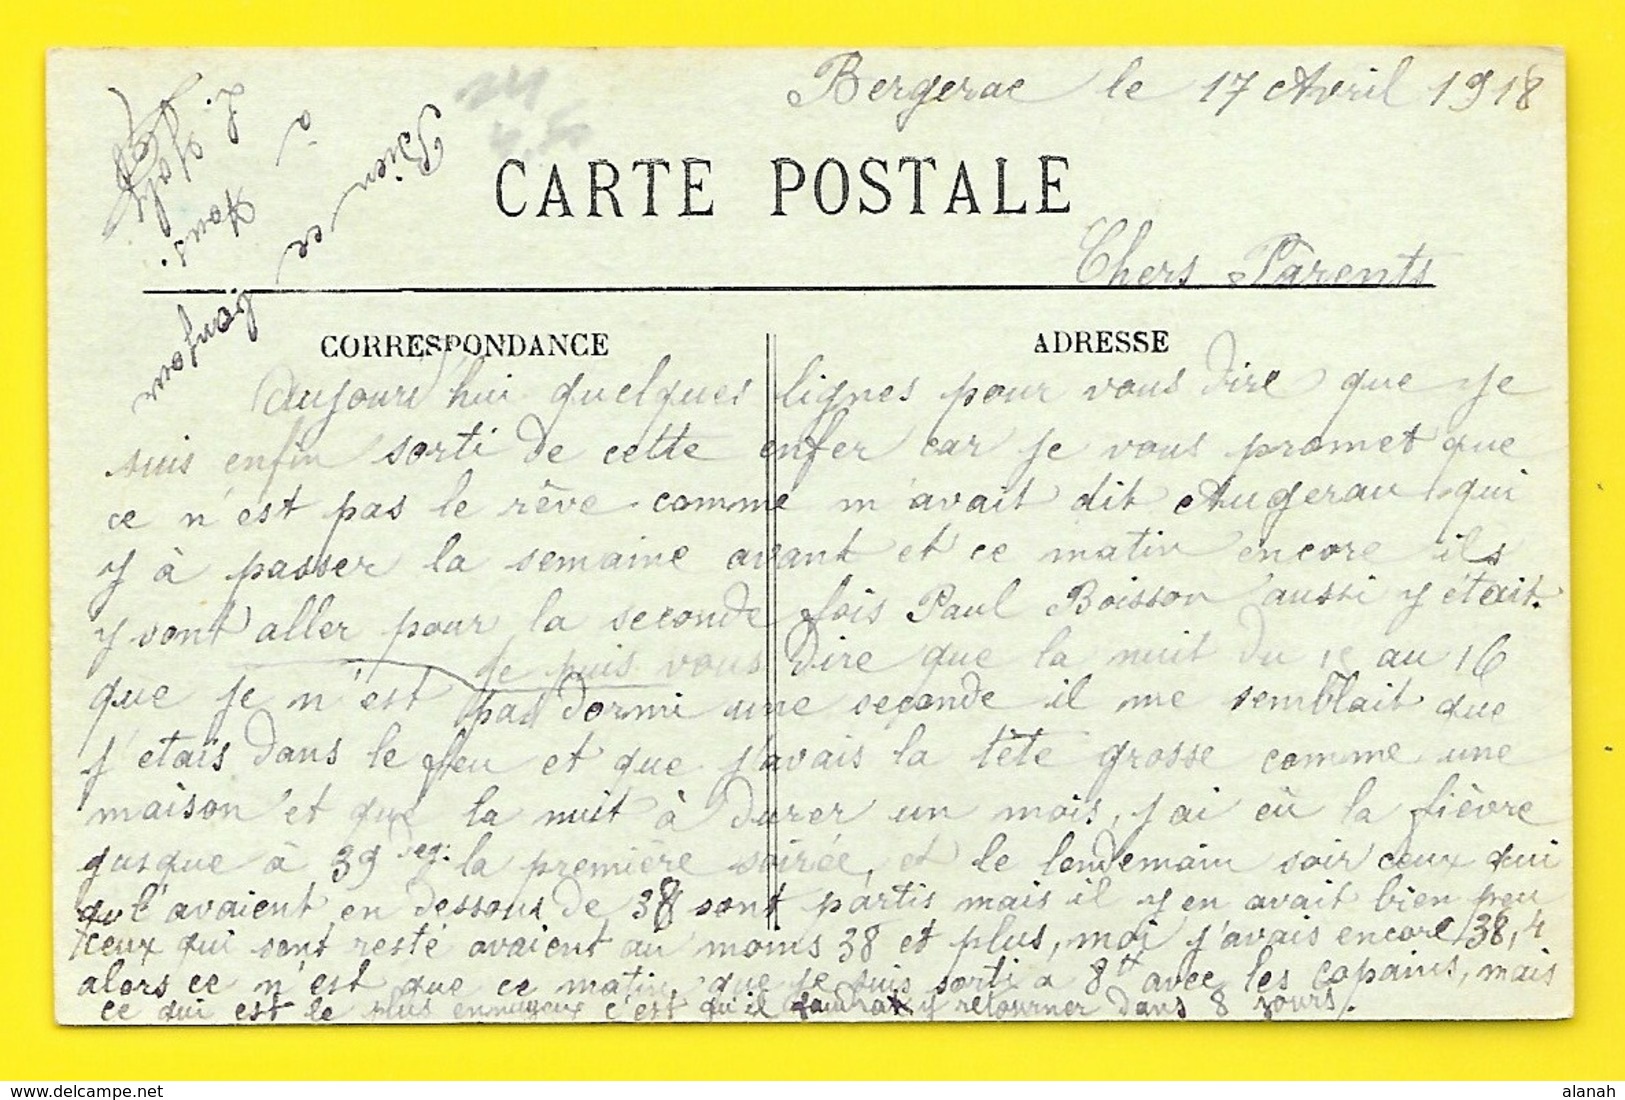 Bergerac le 17 Avril 1918
CARTE POSTALE
Chers Parents
CORRESPONDANCE
ADRESSE
Aujourd'hui quelques lignes pour vous dire que je
suis enfin sorti de cette enfer car je vous promet que
ce n'est pas le rêve comme m'avait dit Augerau qui
y à passer la semaine avant et ce matin encore ils
y vont aller pour la seconde fois Paul Boisson aussi y était.
je puis vous dire que la nuit du 15 au 16
que je n'est pas dormi une seconde il me semblait que
j'etais dans le feu et que j'avais la tête grosse comme une
maison et que la nuit à durer un mois, j'ai eû la fièvre
jusque à 39 deg: la première soirée, et le lendemain soir ceux qui
qu l'avaient en dessous de 38 sont partis mais il y en avait bien peu
ceux qui sont resté avaient au moins 38 et plus, moi j'avais encore 38,4
alors ce n'est que ce matin que je suis sorti a 8h avec les copains, mais
ce qui est le plus ennuyeux c'est qu'il faudrat y retourner dans 8 jours.
Bien
le bonjour
à
vous.